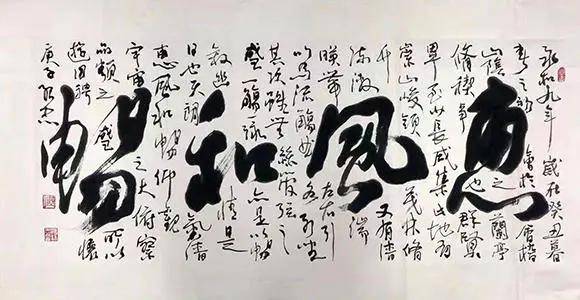 惠風和暢
永和九年歲在癸丑暮
春之初會於會稽
山陰之蘭亭
脩禊事也群賢
畢至少長咸集此地有
崇山峻領茂林脩
竹又有清
流激湍
暎帶左右引
以為流觴曲水列坐
其次雖無絲管弦之
盛一觴一詠亦足以暢
敘幽情是
日也天朗氣清
惠風和暢仰觀
宇宙之大俯察
品類之盛所以
遊目騁懷
庚子